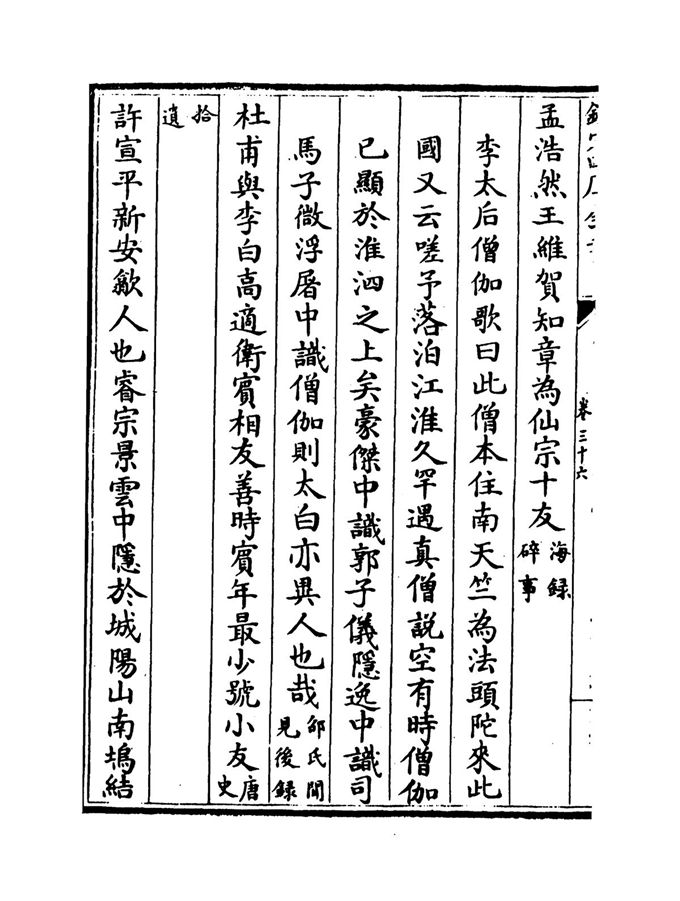 卷三十六
孟浩然王維賀知章為仙宗十友海録碎事
李太后僧伽歌曰此僧本住南天竺為法頭陀來此
國又云嗟予落泊江淮久罕遇真僧説空有時僧伽
已顯於淮泗之上矣豪傑中識郭子儀隱逸中識司
馬子微浮屠中識僧伽則太白亦異人也哉邵氏聞見後録
杜甫與李白高適衛賓相友善時賓年最少號小友唐史
拾遺
許宣平新安歙人也睿宗景雲中隱於城陽山南塢結